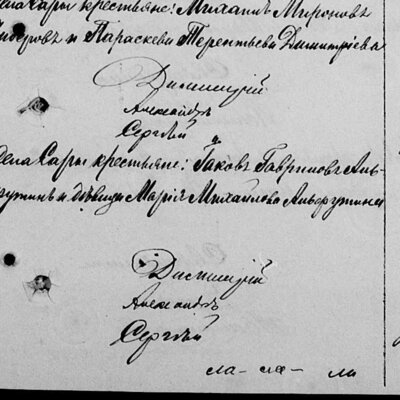 села Сары крестьяне: Михаилъ Мироновъ
и Параскева Терентьева Димитріева
Димитрій
Александръ
Сергѣй
села Сары крестьяне: Іаковъ Гавриловъ
и дѣвица Марія Михайлова
Димитрій
Александръ
Сергѣй
сла- сла- ли